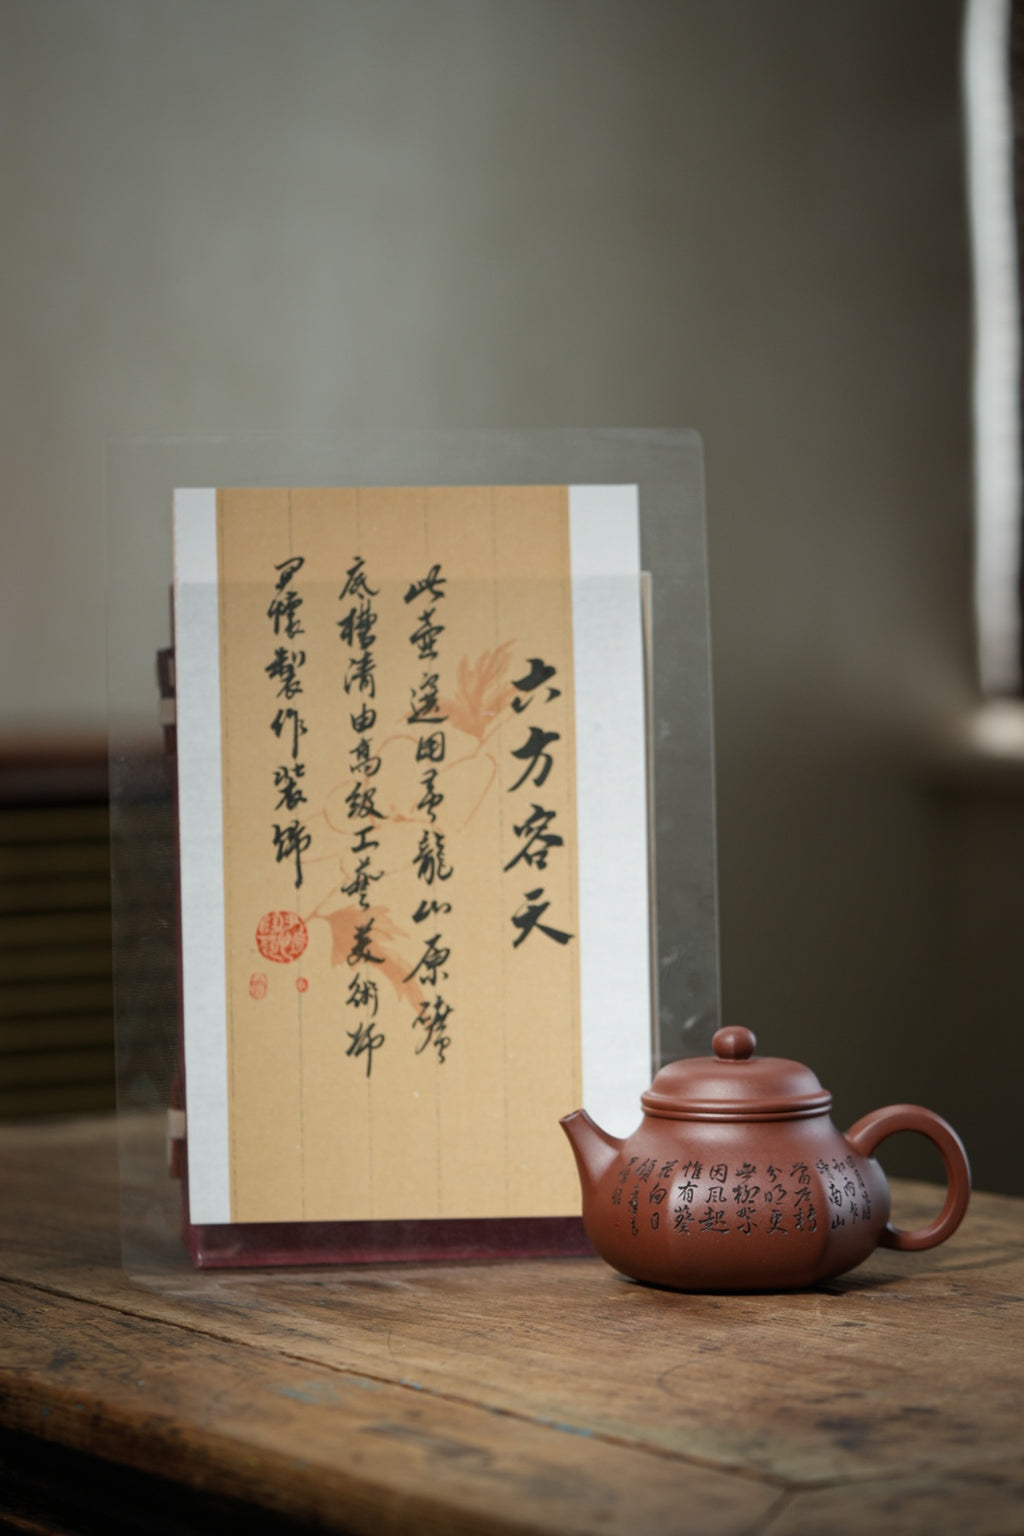 六方容天
此壺選用黃龍山原礦
底槽清由高級工藝美術師
尹懷製作裝飾
四月清
和雨乍
晴南山
當戶轉
分明更
無柳絮
因風起
惟有葵
花向日
傾